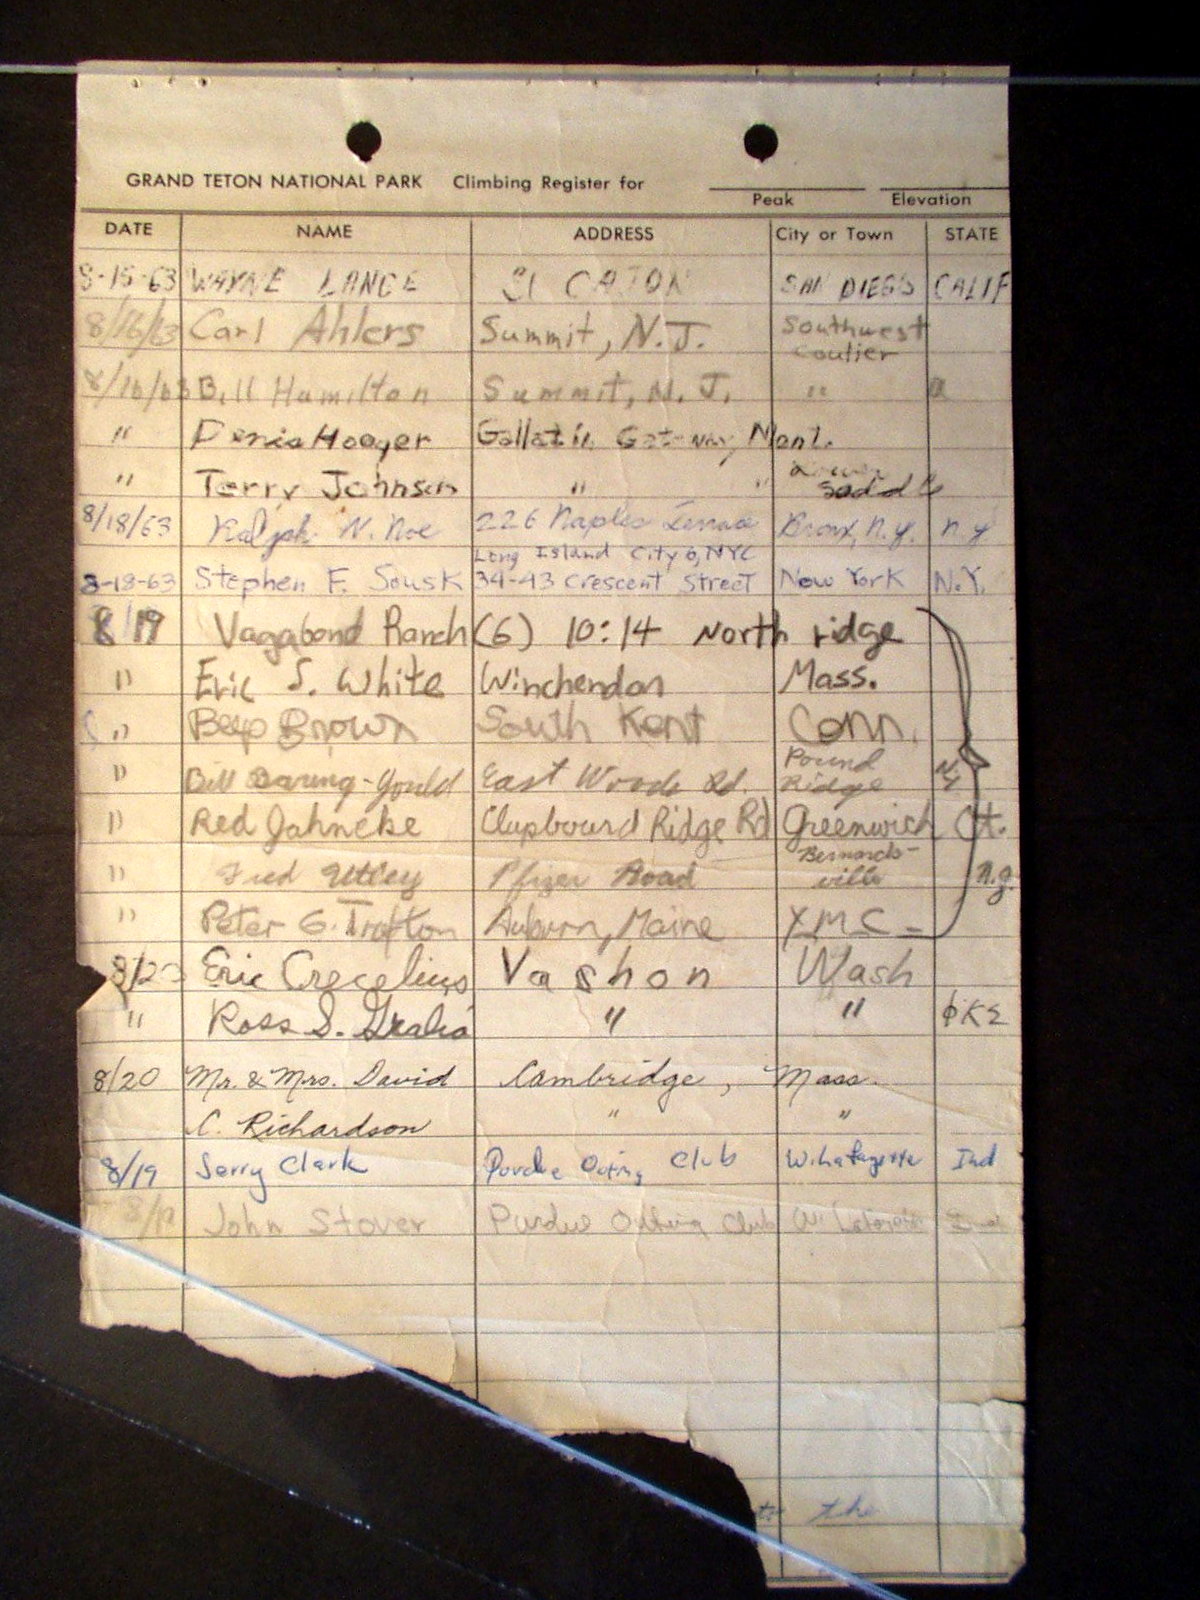 GRAND TETON NATIONAL PARK Climbing Register for
Peak Elevation
DATE NAME ADDRESS City or Town STATE
8-15-63 WAYNE LANCE El CAJON SAN DIEGO CALIF
8/16/63 Carl Ahlers Summit, N.J. Southwest
Coulier
8/16/63 Bill Hamilton Summit, N.J. "
" Hooyer Gallatin Gateway Mont.
" Terry Johnson " " Lower
Saddle
8/18/63 Ralph N. Noe 226 Naples Terrace Bronx, N.Y. N.Y
Long Island City 6, NYC
8-18-63 Stephen F. Sousk 34-43 Crescent Street New York N.Y.
8/19 Vagabond Ranch (6) 10:14 North ridge
" Eric S. White Winchendon Mass.
" Beep Brown South Kent Conn.
" Bill Baring-Gould East Woods Rd. Pound
Ridge NY
" Red Jahncke Clapboard Ridge Rd Greenwich Ct.
" Fred Utley Pfizer Road Bernards-
ville N.J.
" Peter G. Trafton Auburn, Maine YMC-
8/23 Eric Crecelius Vashon Wash
" Ross S. " " ΦΚΣ
8/20 Mr. & Mrs. David Cambridge, Mass.
C. Richardson " "
8/19 Jerry Clark Purdue Outing Club W. Lafayette Ind
8/19 John Stover Purdue Outing Club W. Lafayette Ind
to the